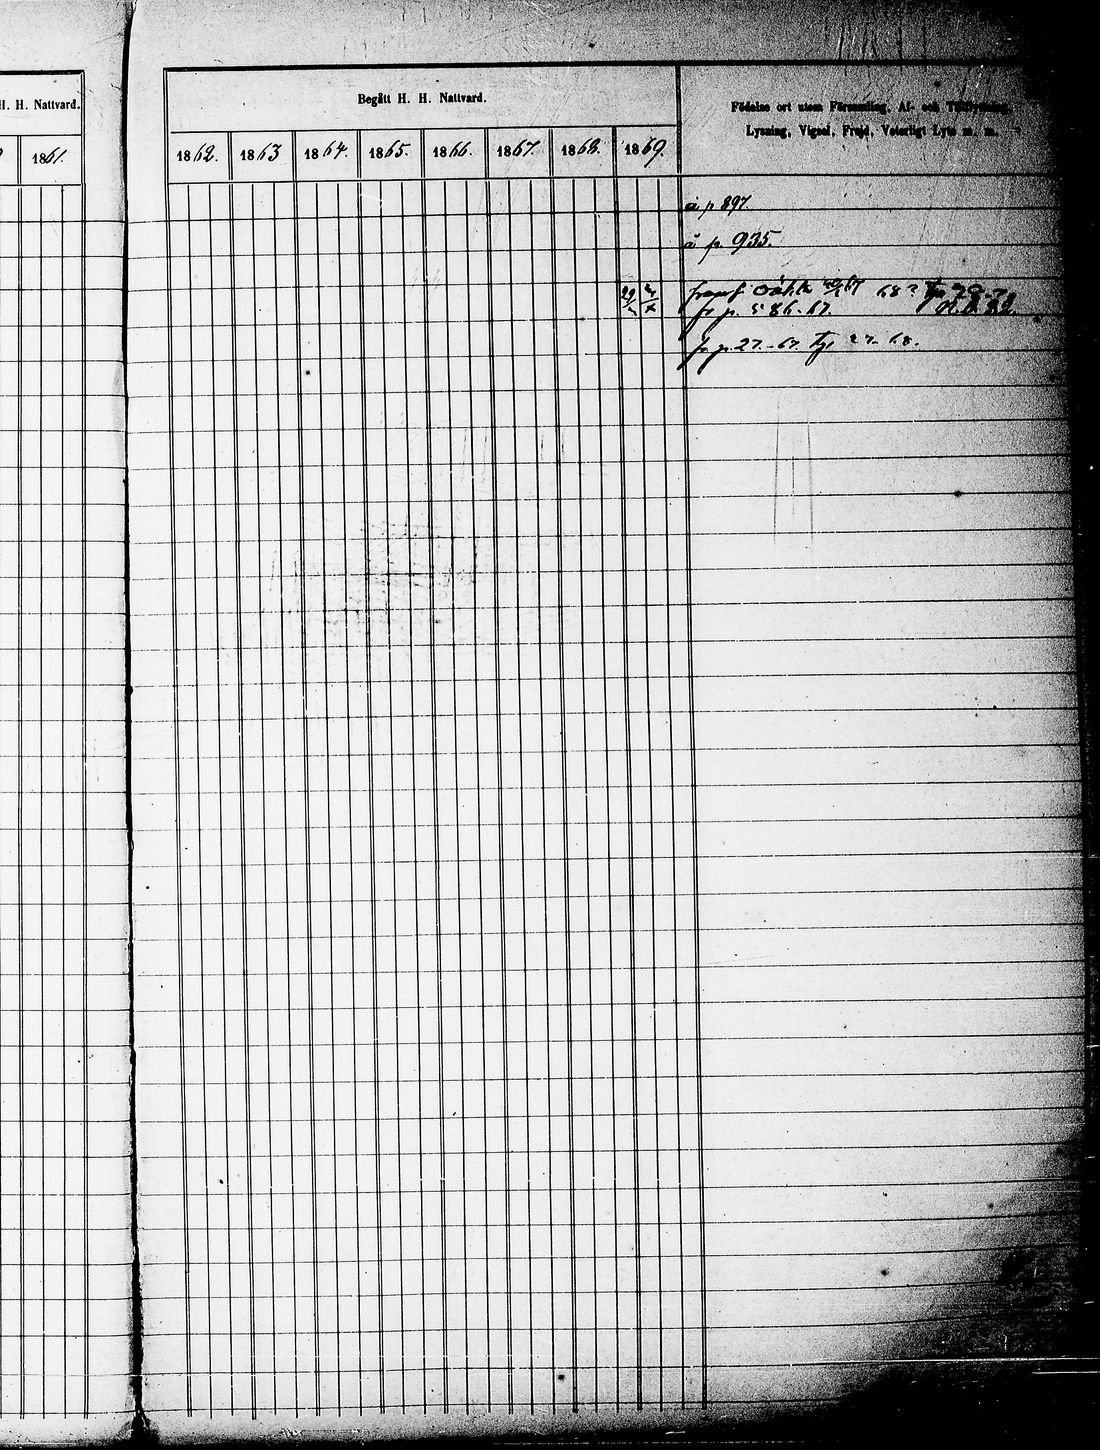 H. H. Nattvard.
1861.
Begått H. H. Nattvard.
1862. 1863 1864. 1865. 1866. 1867. 1868. 1869.
Födelse ort utom Församling. Af- och Tillflyttning,
Lysning, Vigsel, Frejd, Veterligt Lyte m. m.
å p 897.
å p. 935.
68
fr p. 586. 67.
fr p. 27.-67. 27. 68.